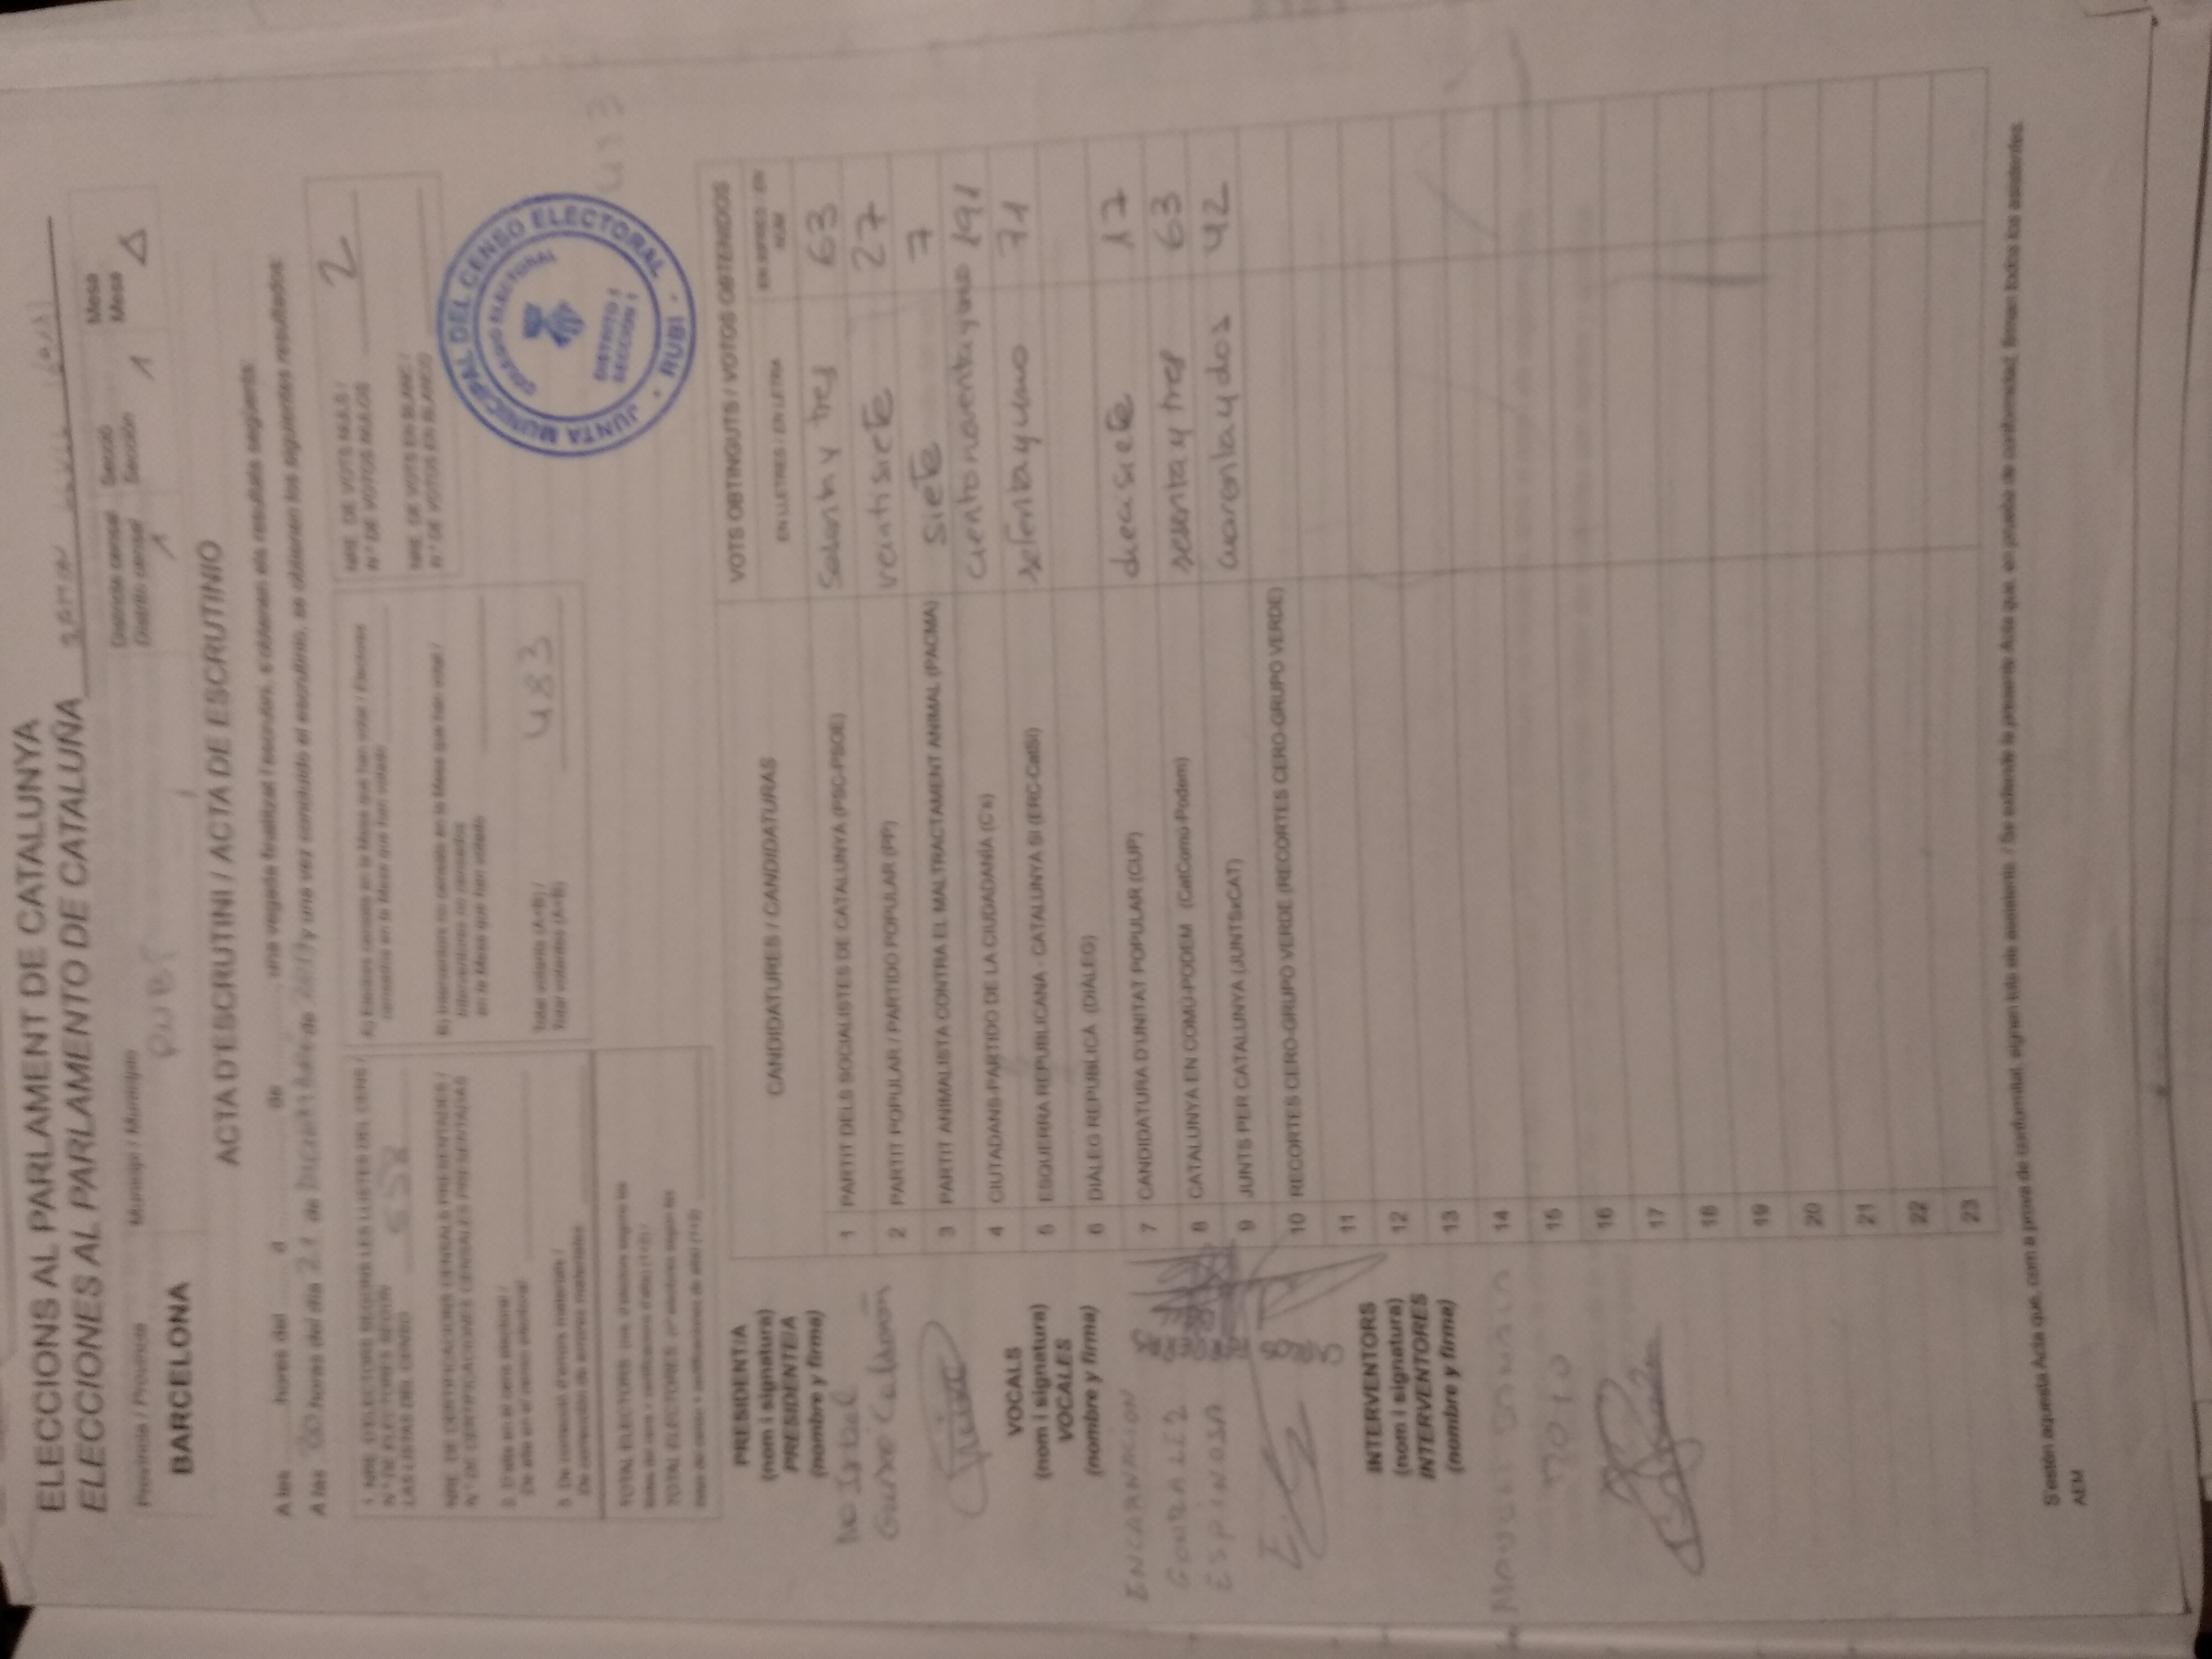 ELECCIONS AL PARLAMENT DE CATALUNYA
ELECCIONES AL PARLAMENTO DE CATALUÑA
Província / Provincia
Municipi / Municipio
Districte censal
Distrito censal
Secció
Sección
Mesa
Mesa
BARCELONA
RUBÍ
1
1
ACTA D'ESCRUTINI / ACTA DE ESCRUTINIO
A les hores del d de , una vegada finalitzat l'escrutini, s'obtenen els resultats següents:
A las 20 horas del día 21 de de 2017 y una vez concluido el escrutinio, se obtienen los siguientes resultados:
1. NRE. D'ELECTORS SEGONS LES LLISTES DEL CENS /
N.º DE ELECTORES SEGÚN
LAS LISTAS DEL CENSO 658
NRE. DE CERTIFICACIONS CENSALS PRESENTADES /
N.º DE CERTIFICACIONES CENSALES PRESENTADAS
2. D'alta en el cens electoral /
De alta en el censo electoral
3. De correcció d'errors materials /
De corrección de errores materiales
TOTAL ELECTORS: (nre. d'electors segons les
llistes del cens + certificacions d'alta) (1+2) /
TOTAL ELECTORES: (nº electores según las
listas del censo + certificaciones de alta) (1+2)
A) Electors censats en la Mesa que han votat / Electores
censados en la Mesa que han votado
B) Interventors no censats en la Mesa que han votat /
Interventores no censados
en la Mesa que han votado
Total votants (A+B) /
Total votantes (A+B) 483
NRE. DE VOTS NULS /
N.º DE VOTOS NULOS 2
NRE. DE VOTS EN BLANC /
N.º DE VOTOS EN BLANCO
JUNTA MUNICIPAL DEL CENSO ELECTORAL
COLEGIO ELECTORAL
DISTRITO 1
SECCION 1
- RUBÍ -
483
PRESIDENT/A
(nom i signatura)
PRESIDENTE/A
(nombre y firma)
VOCALS
(nom i signatura)
VOCALES
(nombre y firma)
ENCARNACION
GONZALEZ
ESPINOSA
CARLOS
INTERVENTORS
(nom i signatura)
INTERVENTORES
(nombre y firma)
CANDIDATURES / CANDIDATURAS
VOTS OBTINGUTS / VOTOS OBTENIDOS
EN LLETRES / EN LETRA
EN XIFRES / EN
NÚM.
1 PARTIT DELS SOCIALISTES DE CATALUNYA (PSC-PSOE) Sesenta y tres 63
2 PARTIT POPULAR / PARTIDO POPULAR (PP) veintisiete 27
3 PARTIT ANIMALISTA CONTRA EL MALTRACTAMENT ANIMAL (PACMA) siete 7
4 CIUTADANS-PARTIDO DE LA CIUDADANÍA (C's) ciento noventa y uno 191
5 ESQUERRA REPUBLICANA - CATALUNYA SÍ (ERC-CatSí) setenta y uno 71
6 DIÀLEG REPUBLICÀ (DIÀLEG)
7 CANDIDATURA D'UNITAT POPULAR (CUP) diecisiete 17
8 CATALUNYA EN COMÚ-PODEM (CatComú-Podem) sesenta y tres 63
9 JUNTS PER CATALUNYA (JUNTSxCAT) cuarenta y dos 42
10 RECORTES CERO-GRUPO VERDE (RECORTES CERO-GRUPO VERDE)
11
12
13
14
15
16
17
18
19
20
21
22
23
S'estén aquesta Acta que, com a prova de conformitat, signen tots els assistents. / Se extiende la presente Acta que, en prueba de conformidad, firman todos los asistentes.
AEM